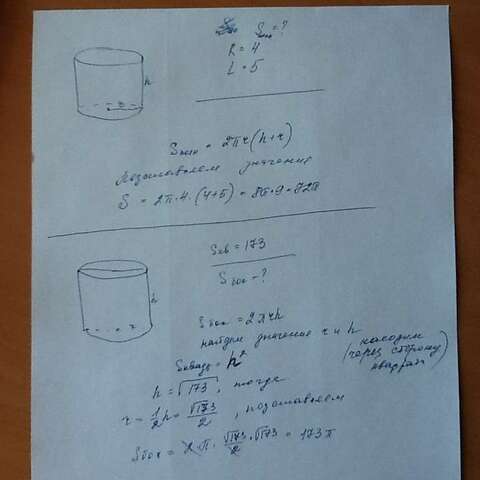 S = ?
R = 4
L = 5
h
r
Sпол = 2πr(h+r)
Подставляем значения
S = 2π·4·(4+5) = 8π·9 = 72π
Sкв = 173
Sбок - ?
h
r
Sбок = 2πrh
найдём значение r и h
находим
(через сторону
квадрата)
Sквад = h²
h = √173, тогда
r = 1/2 h = √173/2, подставляем
Sбок = 2·π·√173/2·√173 = 173π